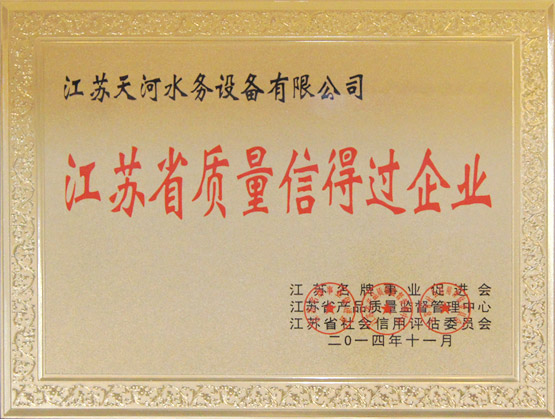 江苏天河水务设备有限公司
江苏省质量信得过企业
江苏名牌事业促进会
江苏省产品质量监督管理中心
江苏省社会信用评估委员会
二〇一四年十一月